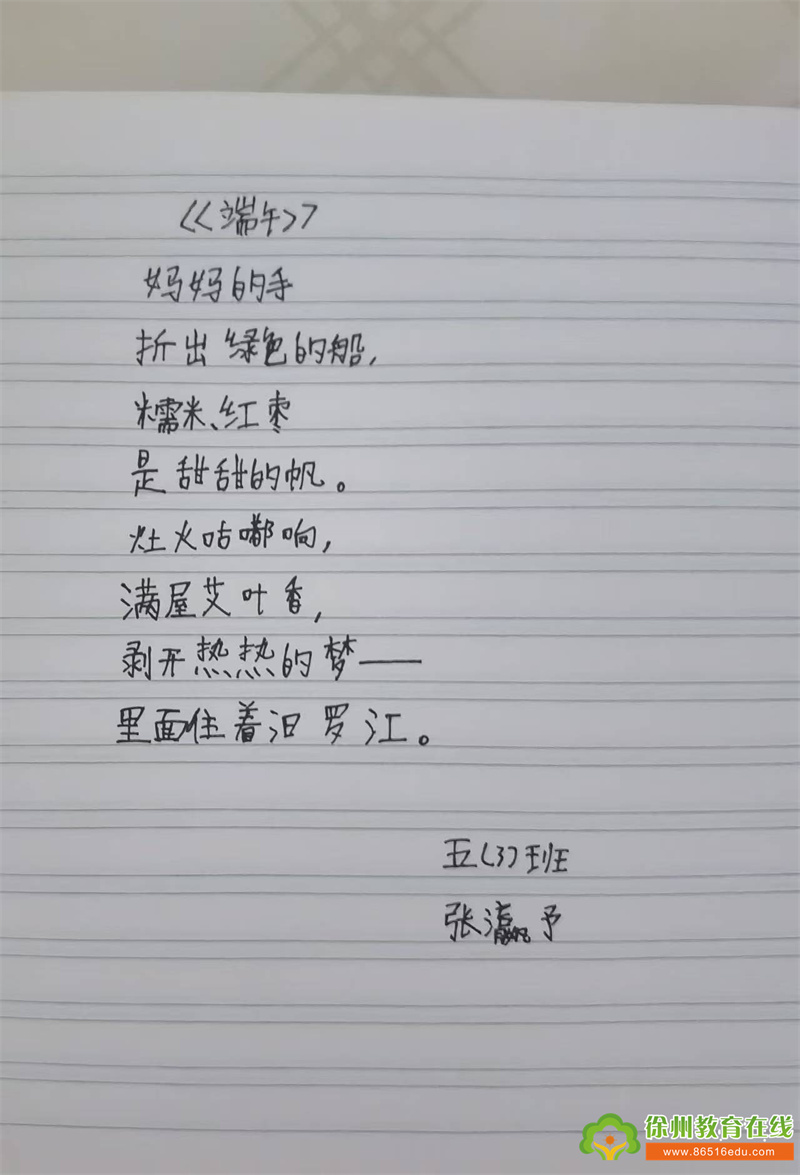 《端午》
妈妈的手
折出绿色的船,
糯米、红枣
是甜甜的帆。
灶火咕嘟响,
满屋艾叶香,
剥开热热的梦——
里面住着汨罗江。
五(3)班
张瀛予
徐州教育在线
www.86516edu.com